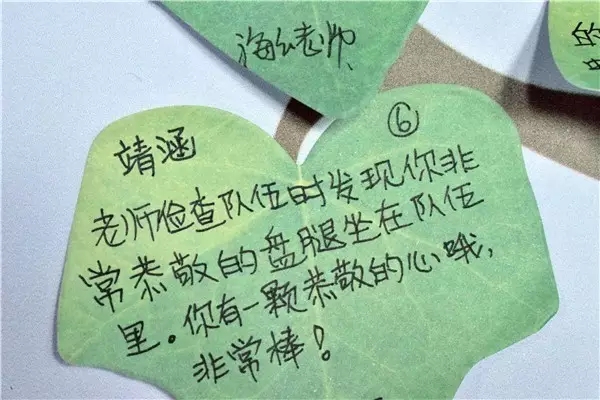 海么老师
的
靖涵
⑥
老师俭查队伍时发现你非
常恭敬的盘腿坐在队伍
里。你有一颗恭敬的心哦,
非常棒!